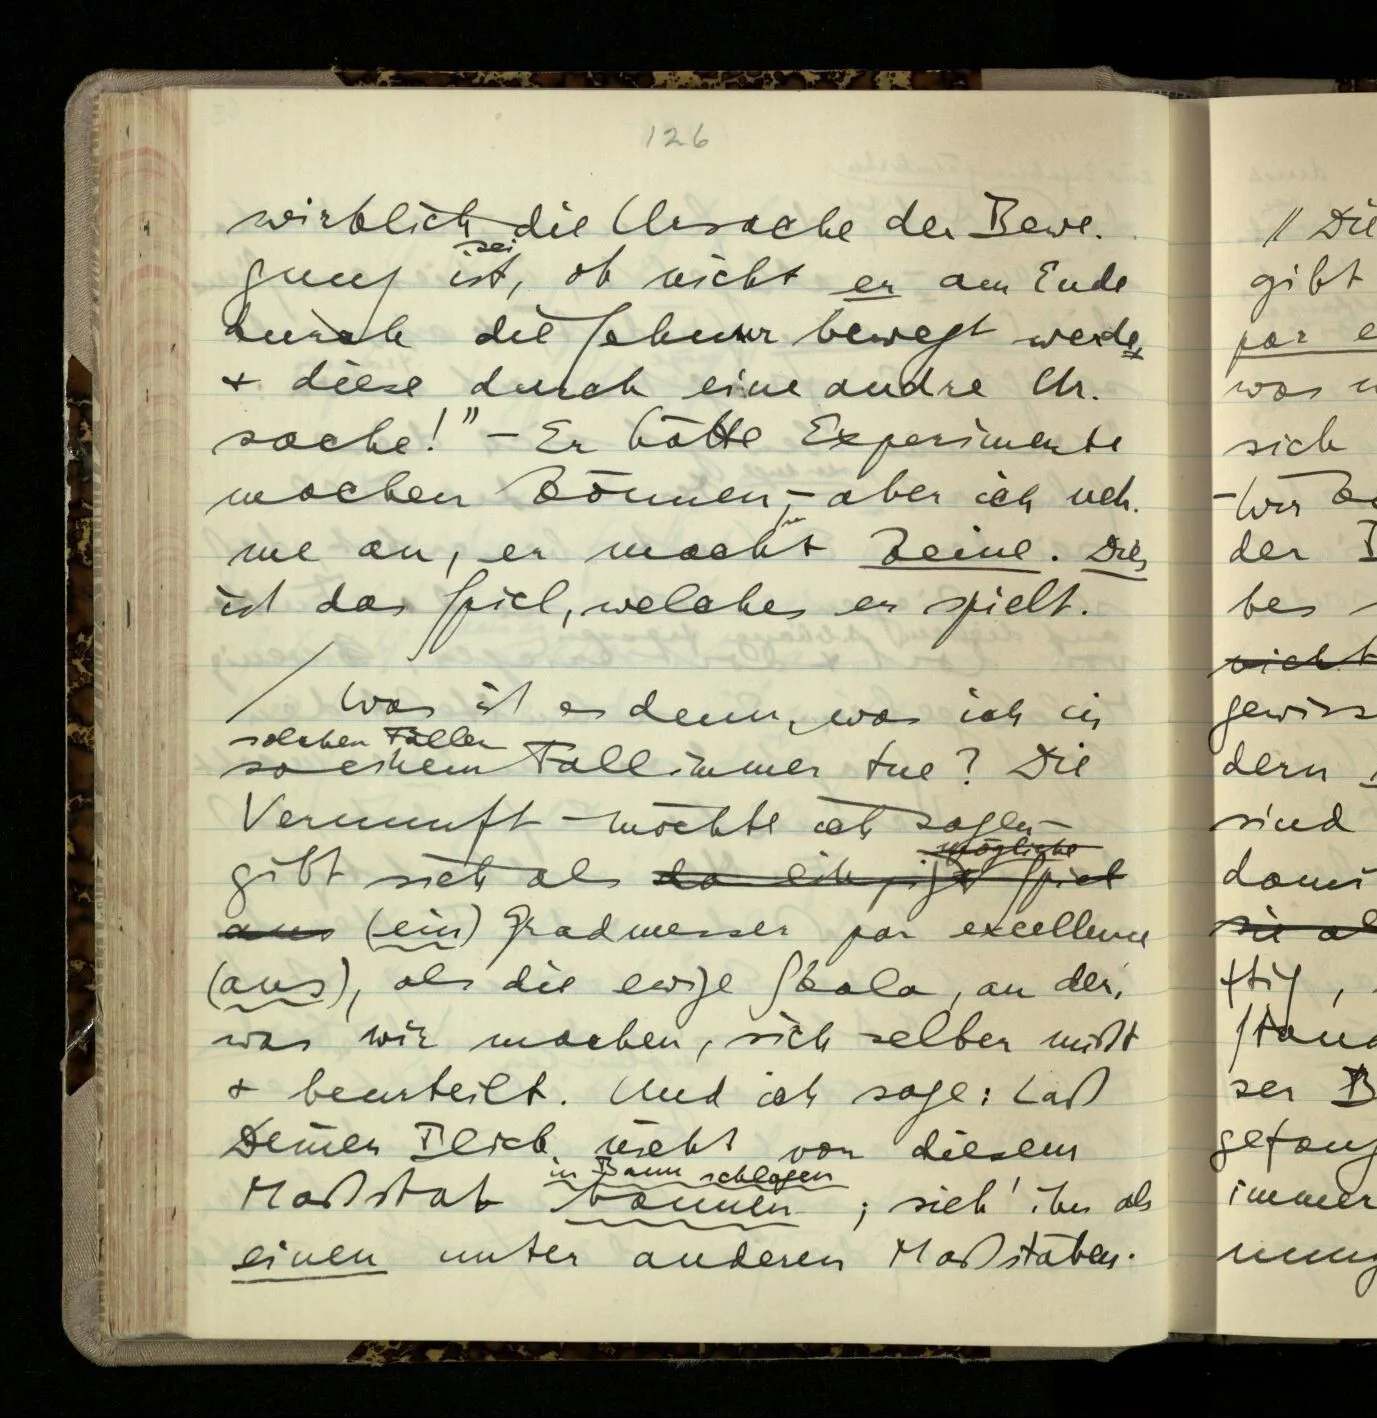 126
wirklich die Ursache der Bewe-
sei
gung ist, ob nicht er am Ende
durch die Schnur bewegt werde,
+ diese durch eine andre Ur-
sache!" – Er hätte Experimente
machen können, – aber ich neh-
me an, er macht keine. Dies
ist das Spiel, welches er spielt.
/ Was ist es denn, was ich in
solchen Fällen
so einem Fall immer tue? Die
Vernunft – möchte ich sagen –
mögliche
gibt sich als da ein Spiel
aus (ein) Gradmesser par excellence
(aus), als die ewige Skala, an der,
was wir machen, sich selber mißt
+ beurteilt. Und ich sage: Laß
Deinen Blick nicht von diesem
in Bann schlagen
Maßstab bannen; sieh' ihn als
einen unter anderen Maßstäben.
// Die
gibt
par e
was
sich
– Wir
der
bes
nicht
gewiss
dern
sind
dami
sie al
ftig,
stand
ser B
gefang
immer
nung